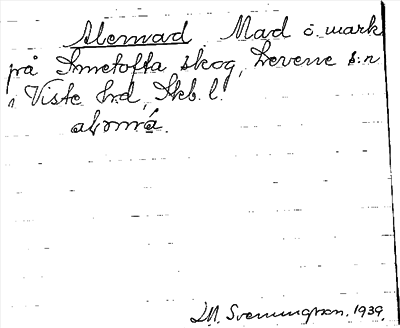 Alemad Mad o. mark
på Simetofta skog, Levene s:n
i Viste hd, Skb. l.
L.M. Svenungsson, 1939.